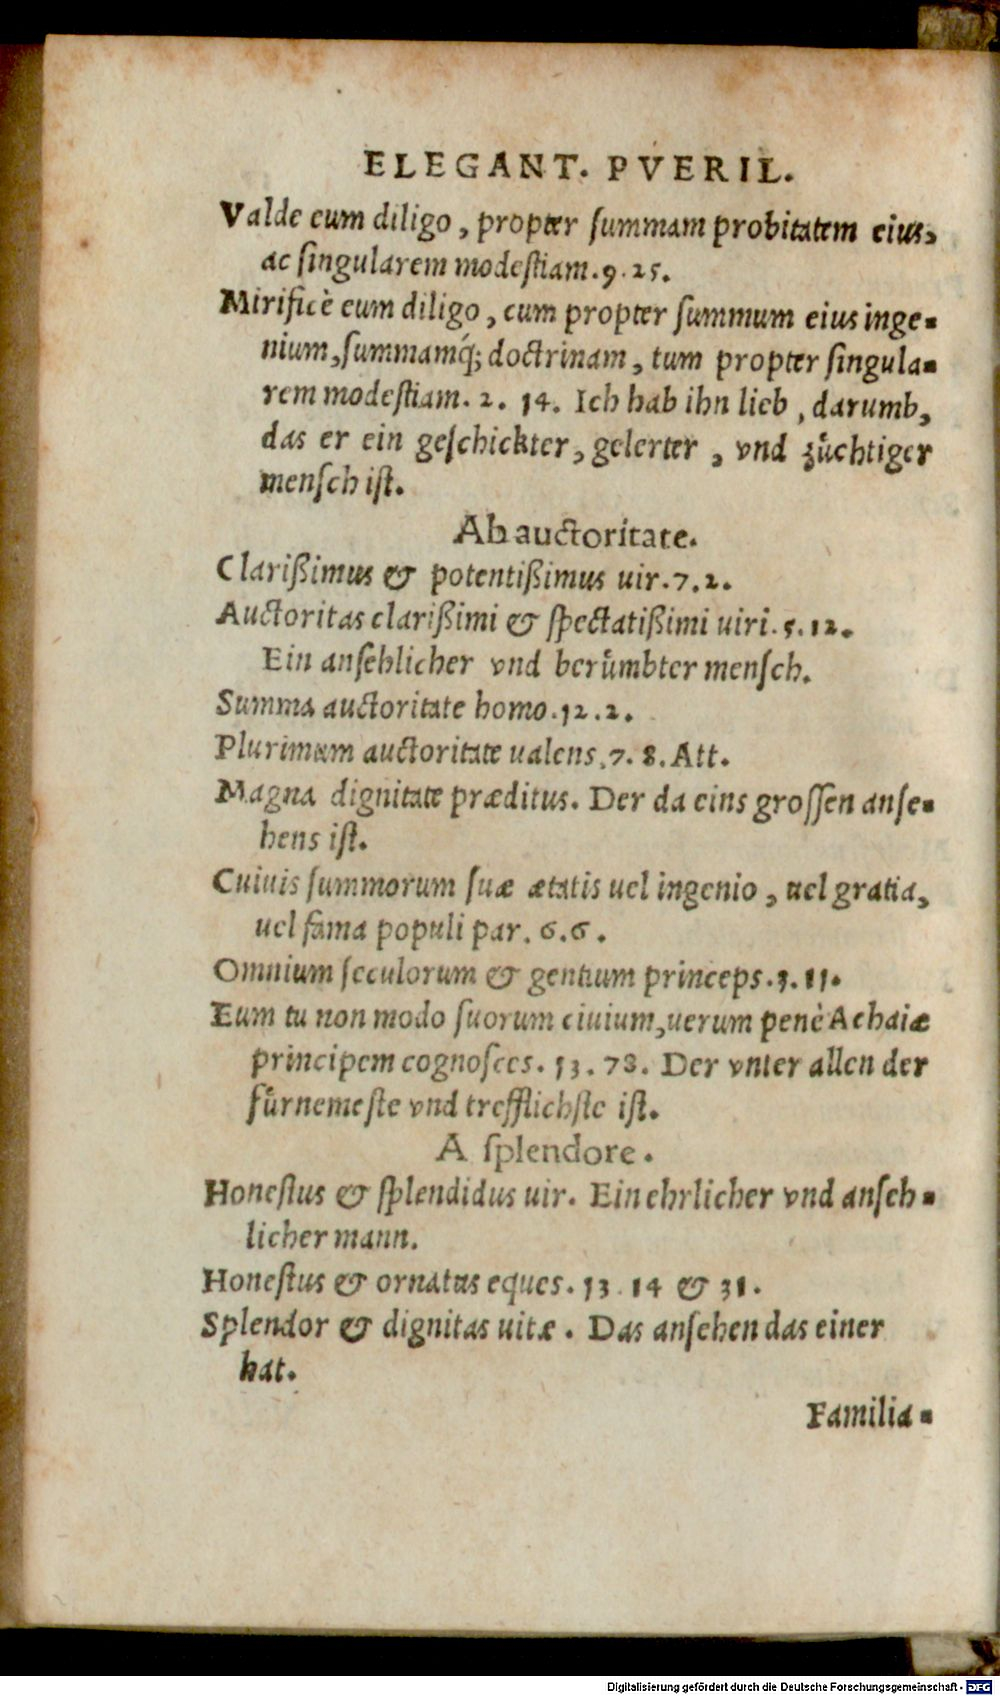 ELEGANT. PVERIL.
Valde eum diligo, propter ſummam probitatem eius,
ac ſingularem modeſtiam. 9. 25.
Mirificè eum diligo, cum propter ſummum eius inge-
nium, ſummamq́; doctrinam, tum propter ſingula-
rem modeſtiam. 2. 14. Ich hab ihn lieb, darumb,
das er ein geſchickter, gelerter, vnd zuͤchtiger
menſch iſt.
Ab auctoritate.
Clarißimus & potentißimus uir. 7. 2.
Auctoritas clarißimi & ſpectatißimi uiri. 5. 12.
Ein anſehlicher vnd beruͤmbter menſch.
Summa auctoritate homo. 12. 2.
Plurimum auctoritate ualens. 7. 8. Att.
Magna dignitate præditus. Der da eins groſſen anſe-
hens iſt.
Cuiuis ſummorum ſuæ ætatis uel ingenio, uel gratia,
uel fama populi par. 6. 6.
Omnium ſeculorum & gentium princeps. 3. 11.
Eum tu non modo ſuorum ciuium, uerum penè Achaiæ
principem cognoſces. 13. 78. Der vnter allen der
fuͤrnemeſte vnd trefflichſte iſt.
A ſplendore.
Honeſtus & ſplendidus uir. Ein ehrlicher vnd anſeh-
licher mann.
Honeſtus & ornatus eques. 13. 14 & 31.
Splendor & dignitas uitæ. Das anſehen das einer
hat.
Familia-
Digitalisierung gefördert durch die Deutsche Forschungsgemeinschaft - DFG